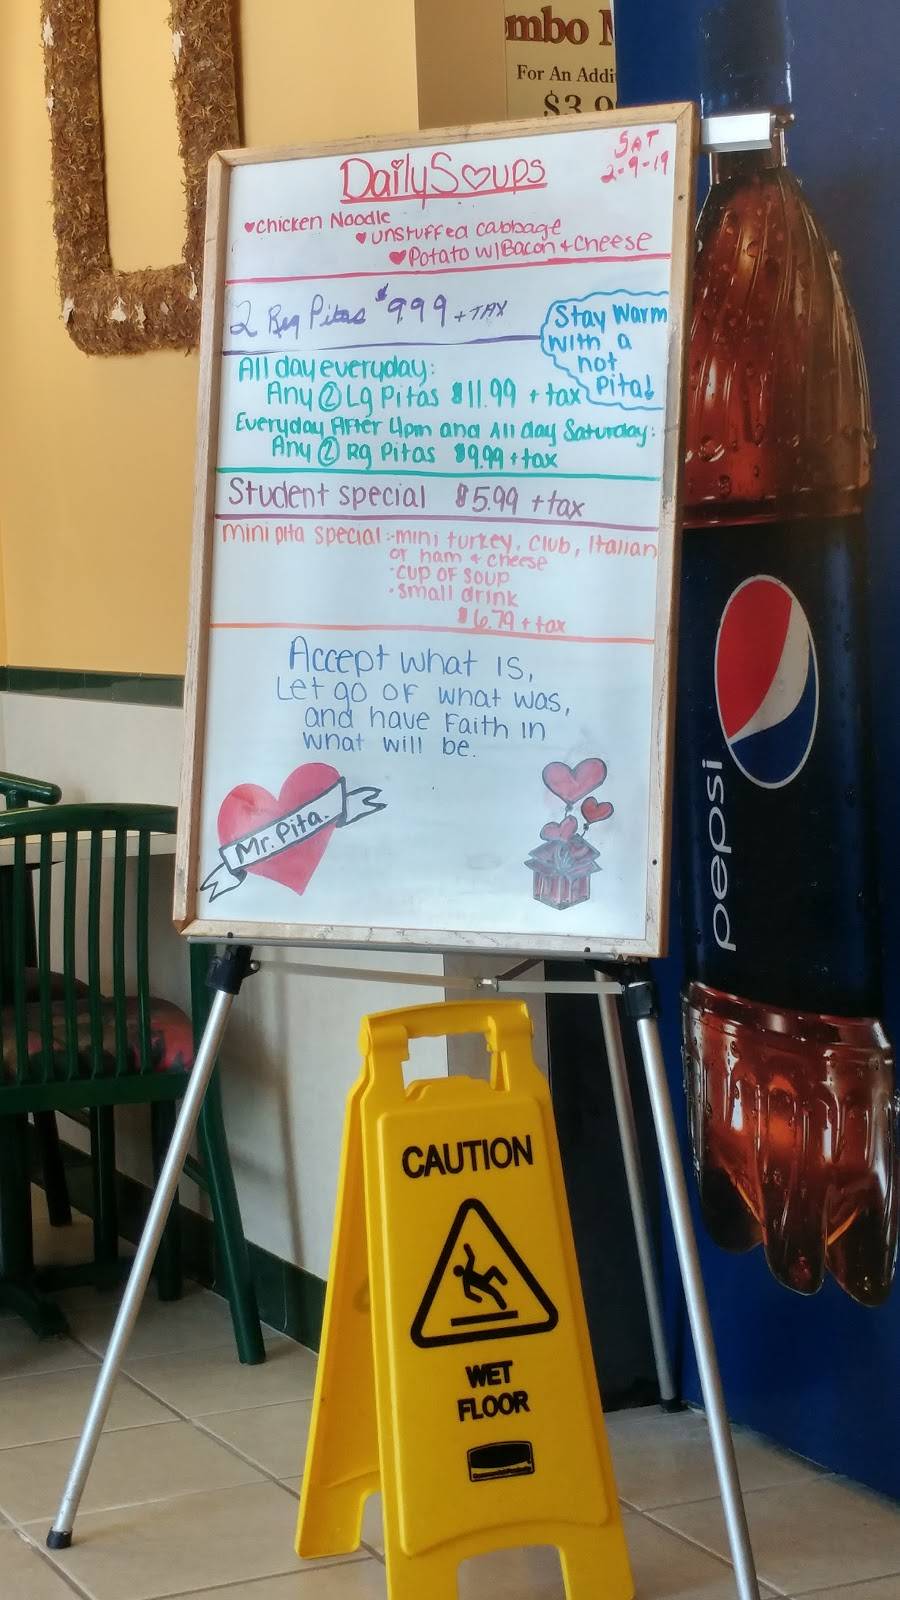 mbo M
For An Addi
$3.9
Daily Soups
SAT
2-9-19
Chicken Noodle
unstuffed cabbage
Potato w/Bacon + cheese
2 Reg Pitas $999 + TAX
Stay Warm
with a
hot
Pita!
All day everyday:
Any 2 Lg Pitas $11.99 + tax
Everyday After 4pm and All day Saturday:
Any 2 Rg Pitas $9.99 + tax
Student special $5.99 + tax
mini pita special: -mini turkey, club, Italian
or ham & cheese
·cup of soup
·small drink
$6.79 + tax
Accept what is,
Let go of what was,
and have Faith in
what will be.
Mr. Pita.
pepsi
CAUTION
WET
FLOOR